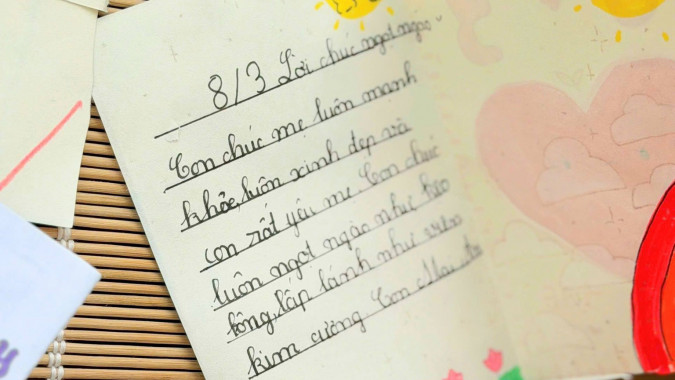 8/3 Lời chúc ngọt ngào
Con chúc mẹ luôn mạnh
khỏe, luôn xinh đẹp và
con rất yêu mẹ. Con chúc
luôn ngọt ngào như kẹo
bông, lấp lánh như viên
kim cương. Con